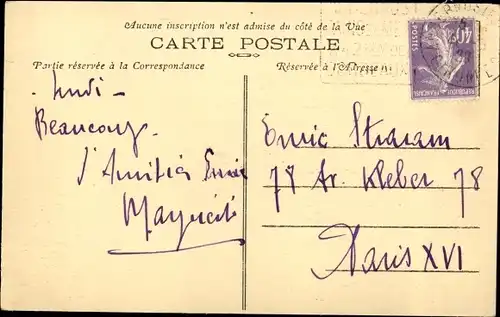 Aucune inscription n'est admise du côté de la Vue
CARTE POSTALE
Partie réservée à la Correspondance
Réservée à l'Adresse
POSTES
40c
REPUBLIQUE FRANÇAISE
Lundi -
Beaucoup
d'Amitiés
Marguerite
Straram
78 Av. Kleber 78
Paris XVI